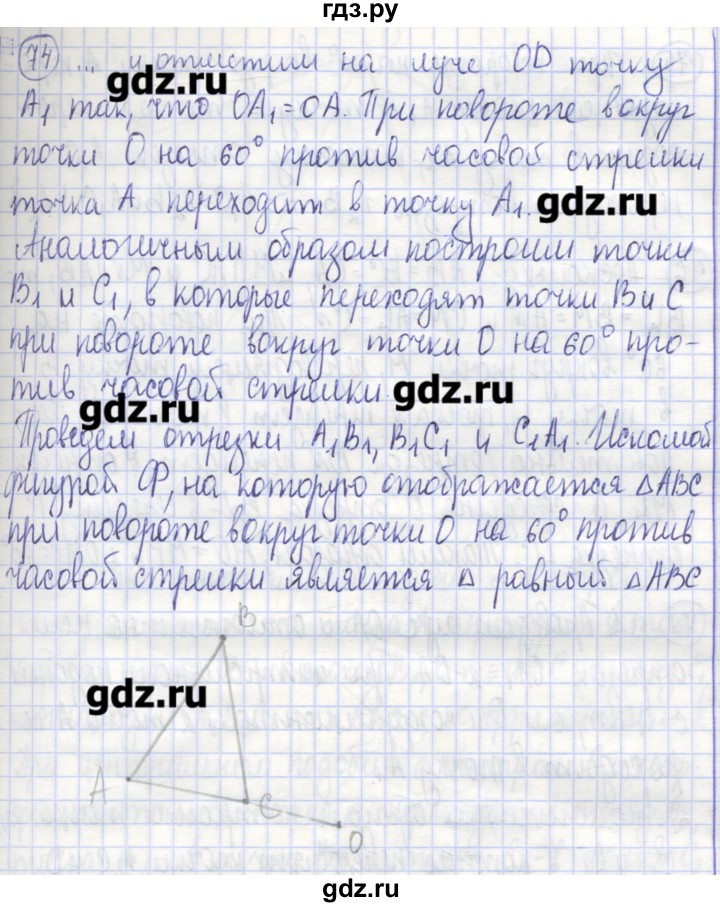 гдз.ру
74 ... и отметим на луче OD точку
gdz.ru
A₁ так, что OA₁=OA. При повороте вокруг
точки O на 60° против часовой стрелки
точка A переходит в точку A₁.
gdz.ru
Аналогичным образом построим точки
B₁ и C₁, в которые переходят точки B и C
при повороте вокруг точки O на 60° про-
тив часовой стрелки.
gdz.ru
gdz.ru
Проведем отрезки A₁B₁, B₁C₁ и C₁A₁. Искомой
фигурой Ф, на которую отображается △ABC
при повороте вокруг точки O на 60° против
часовой стрелки является △ равный △ABC
B
gdz.ru
A
C
O
gdz.ru